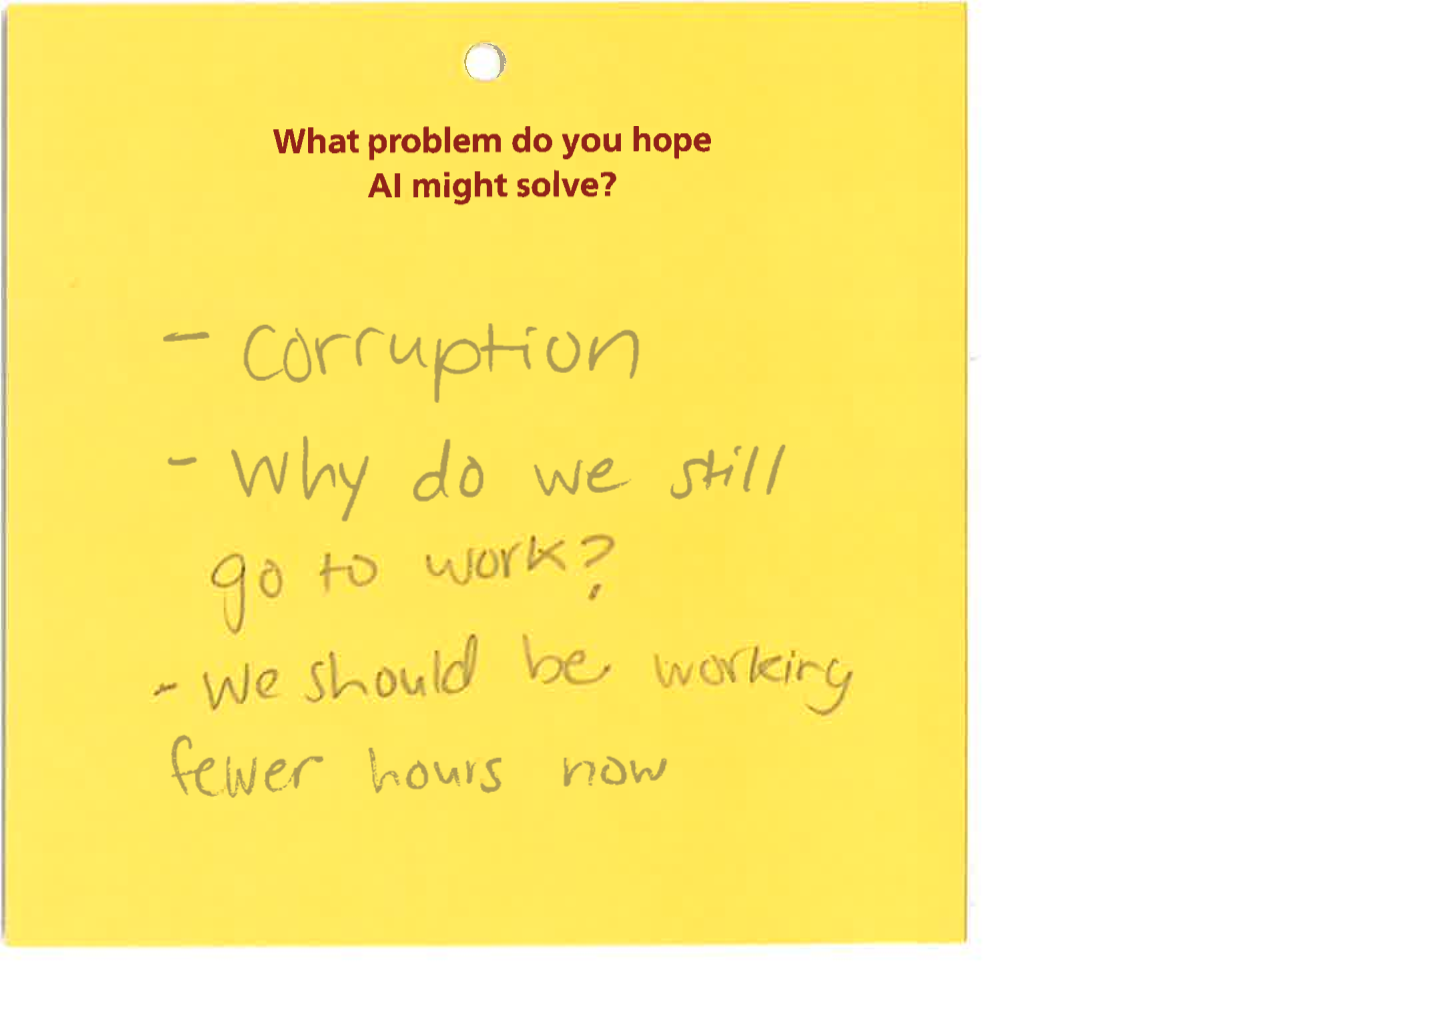 What problem do you hope
AI might solve?
- Corruption
- Why do we still
go to work?
- We should be working
fewer hours now